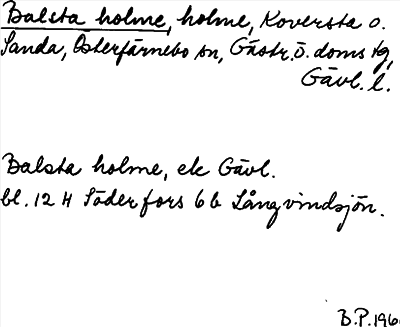 Balsta holme, holme, Koversta o.
Sanda, Österfärnebo sn, Gästr. Ö. doms tg,
Gävl. l.
Balsta holme, ek Gävl.
bl. 12 H Söderfors 6 b Långvindsjön.
B.P. 196